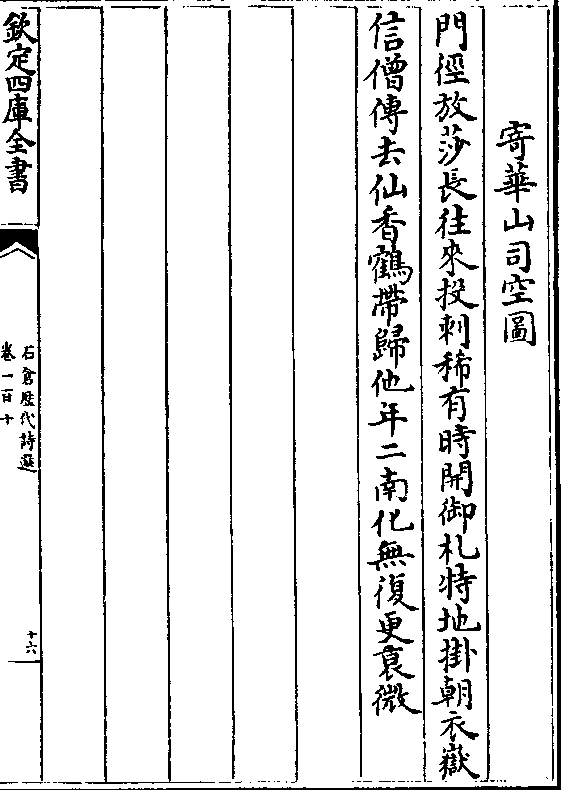 寄華山司空圖
門徑放莎長往來投刺稀有時開御札特地掛朝衣嶽
信僧傳去仙香鶴帶歸他年二南化無復更衰微
欽定四庫全書
石倉歷代詩選
卷一百十
十六